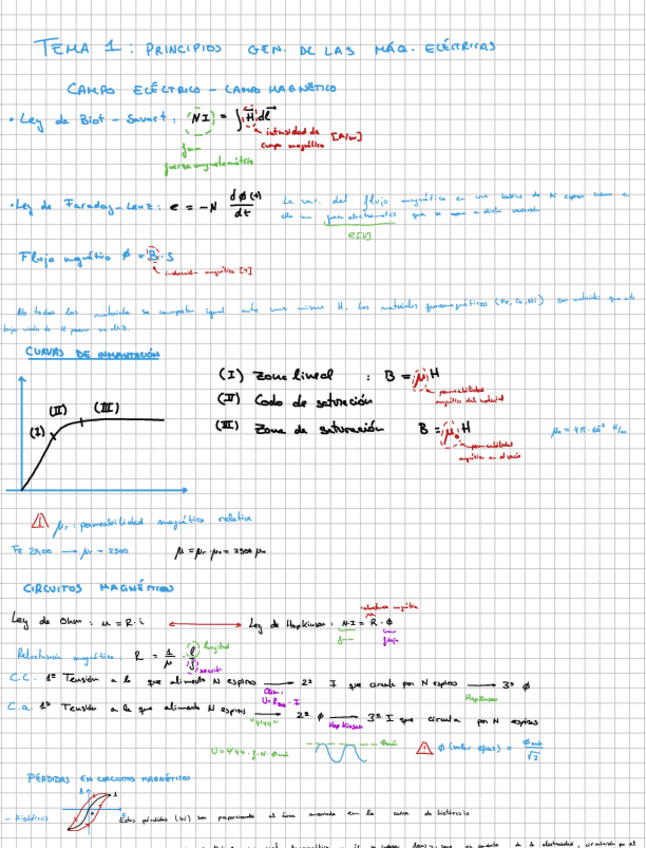 TEMA 1: PRINCIPIOS GEN. DE LAS MÁQ. ELÉCTRICAS
CAMPO ELÉCTRICO - CAMPO MAGNÉTICO
• Ley de Biot - Savart: NI = ∫ H dl
intensidad de campo magnético [A/m]
fmm
fuerza magnetomotriz
• Ley de Faraday-Lenz: e = -N dϕ(t)/dt
La var. del flujo magnético en una bobina de N espiras
en ella una que se opone a dicha variación
e [V]
Flujo magnético ϕ = B · S
inducción magnética [T]
No todos los materiales se comportan igual ante un mismo H. Los materiales ferromagnéticos (Fe, Co, Ni) son
CURVAS DE IMANTACIÓN
(I) (II) (III)
(I) Zona lineal : B = μ H
permeabilidad magnética del material
(II) Codo de saturación
(III) Zona de saturación B = μ₀ H
permeabilidad magnética en el vacío
μ₀ = 4π · 10⁻⁷ H/m
μr: permeabilidad magnética relativa
→ μr = 2500 μ = μr · μ₀ = 2500 μ₀
CIRCUITOS MAGNÉTICOS
Ley de Ohm: u = R · i ↔ Ley de Hopkinson: N·I = R · ϕ
reluctancia magnética
fmm flujo
Reluctancia magnética: R = 1/μ · l/S
longitud
sección
C.C. 1º Tensión a la que alimento N espiras → 2º I que circula por N espiras → 3º ϕ
Ohm, Hopkinson
C.a. 1º Tensión a la que alimento N espiras → 2º ϕ → 3º I que circula por N espiras
"4'44" Hopkinson
U = 4'44 · f · N · ϕmáx
ϕmáx
ϕ (valor eficaz) = ϕmáx/√2
PÉRDIDAS EN CIRCUITOS MAGNÉTICOS
- Histéresis Estas pérdidas (W) son proporcionales al área encerrada en la curva de histéresis